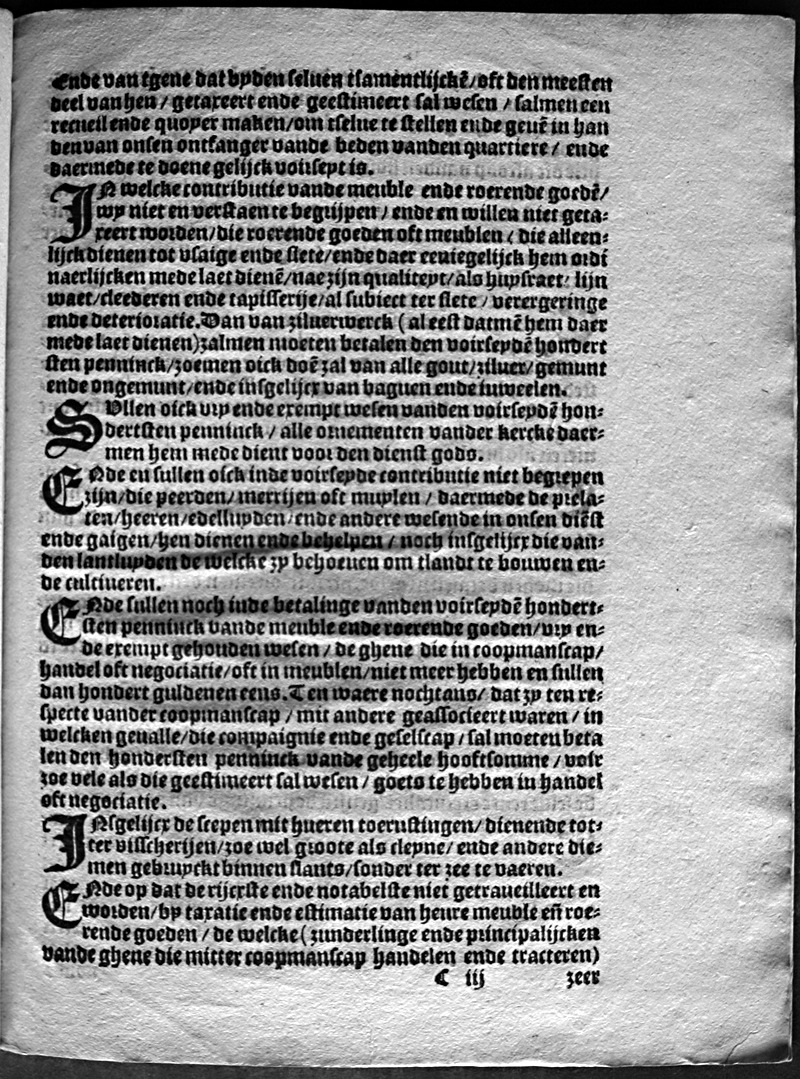 Ende van tgene dat byden seluen tsamentlijckē/oft den meesten
deel van hen/ getaxeert ende geestimeert sal wesen / salmen een
recueil ende quoyer maken/om tselue te stellen ende geuē in han
den van onsen ontfanger vande beden vanden quartiere/ ende
daermede te doene gelijck voirseyt is.
IN welcke contributie vande meuble ende roerende goedē/
wy niet en verstaen te begrijpen / ende en willen niet geta-
xeert worden/die roerende goeden oft meublen / die alleen-
lijck dienen tot vsaige ende slete/ende daer eeniegelijck hem ordi
naerlijcken mede laet dienē/nae zijn qualiteyt/als huysraet/ lijn
waet/cleederen ende tapisserije/al subiect ter slete / verergeringe
ende deterioratie. Dan van ziluerwerck (al eest datmē hem daer
mede laet dienen)zalmen moeten betalen den voirseydē hondert
sten penninck/zoemen oick doē zal van alle gout/ziluer/gemunt
ende ongemunt/ende insgelijcx van baguen ende iuweelen.
SUllen oick vry ende exempt wesen vanden voirseydē hon-
dertsten penninck / alle ornementen vander kercke daer-
men hem mede dient voor den dienst gods.
ENde en sullen oick inde voirseyde contributie niet begrepen
zijn/die peerden/merrijen oft muylen / daermede de prela-
ten/heeren/edelluyden/ende andere wesende in onsen diēst
ende gaigen/hen dienen ende behelpen / noch insgelijcx die van-
den lantluyden de welcke zy behoeuen om tlandt te bouwen en-
de cultiueren.
ENde sullen noch inde betalinge vanden voirseydē hondert-
sten penninck vande meuble ende roerende goeden/vry en-
de exempt gehouden wesen / de ghene die in coopmanscap/
handel oft negociatie/oft in meublen/niet meer hebben en sullen
dan hondert guldenen eens. Ten waere nochtans/ dat zy ten re-
specte vander coopmanscap / mit andere geassocieert waren / in
welcken geualle/die compaignie ende geselscap / sal moeten beta
len den hondersten penninck vande geheele hooftsomme / voir
zoe vele als die geestimeert sal wesen / goets te hebben in handel
oft negociatie.
INsgelijcx de scepen mit hueren toerustingen/ dienende tot-
ter visscherijen/zoe wel groote als cleyne/ ende andere die-
men gebruyckt binnen slants/sonder ter zee te vaeren.
ENde op dat de rijcxste ende notabelste niet getraueilleert en
worden/by taxatie ende estimatie van heure meuble eñ roe-
rende goeden / de welcke (zunderlinge ende principalijcken
vande ghene die mitter coopmanscap handelen ende tracteren)
C iij zeer